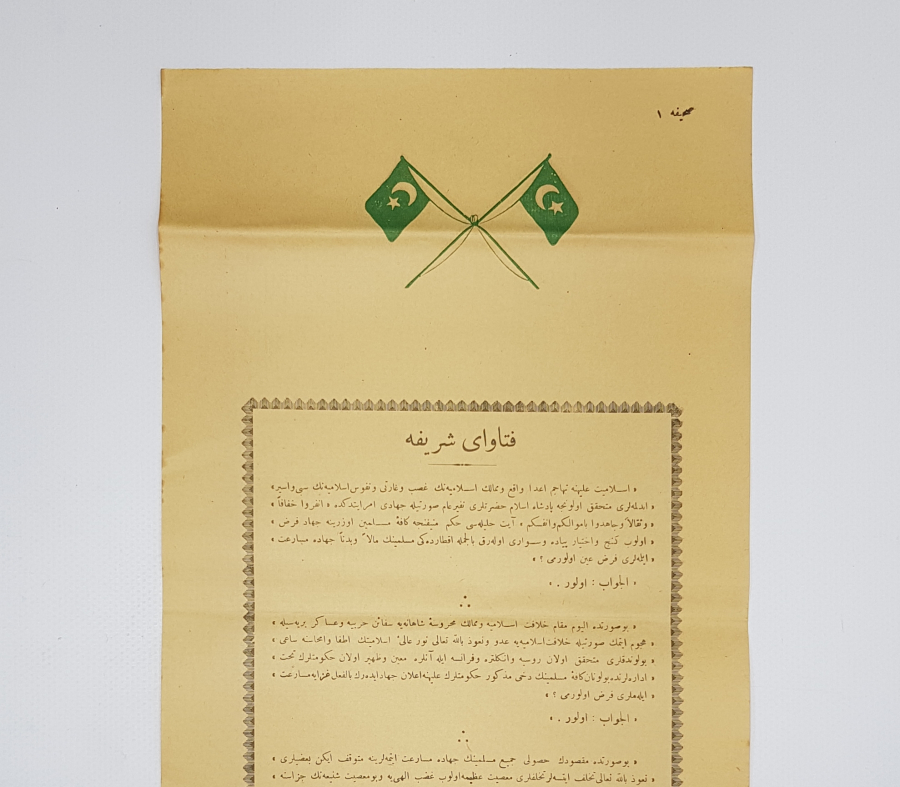 صحيفه ١
فتاواى شريفه
« اسلاميت عليهنه تهاجم اعدا واقع وممالك اسلاميه‌نك غصب وغارتى ونفوس اسلاميه‌نك سبى واسير »
« ايدلملرى متحقق اولونجه پادشاه اسلام حضرتلرى نفير عام صورتيله جهادى امر ايتدكده « انفروا خفافاً »
« وثقالاً وجاهدوا باموالكم وانفسكم » آيت جليله‌سى حكم منيفنجه كافهٔ مسلمين اوزرينه جهاد فرض »
« اولوب كنج واختيار پياده وسوارى اوله‌رق بالجمله اقطارده‌كى مسلمينك مالاً وبدناً جهاده مسارعت »
« ايله‌لرى فرض عين اولورمى ؟ »
« الجواب : اولور . »
« بو صورتده اليوم مقام خلافت اسلاميه وممالك محروسهٔ شاهانه‌يه سفائن حربيه وعساكر بريه‌سيله »
« هجوم ايتمك صورتيله خلافت اسلاميه‌يه عدو ونعوذ بالله تعالى نور عالىٔ اسلاميتك اطفا وامحاسنه ساعى »
« بولوندقلرى متحقق اولان روسيه وانكلتره وفرانسه ايله آنلره معين وظهير اولان حكومتلرك تحت »
« اداره‌لرنده بولونان كافهٔ مسلمينك دخى مذكور حكومتلرك عليهنه اعلان جهاد ايده‌رك بالفعل غزايه مسارعت »
« ايله‌ملرى فرض اولورمى ؟ »
« الجواب : اولور . »
« بو صورتده مقصودك حصولى جميع مسلمينك جهاده مسارعت ايتمه‌لرينه متوقف ايكن بعضيلرى »
« نعوذ بالله تعالى تخلف ايتسه‌لر تخلفلرى معصيت عظيمه اولوب غضب الهى‌يه وبو معصيت شنيعه‌نك جزاسنه »